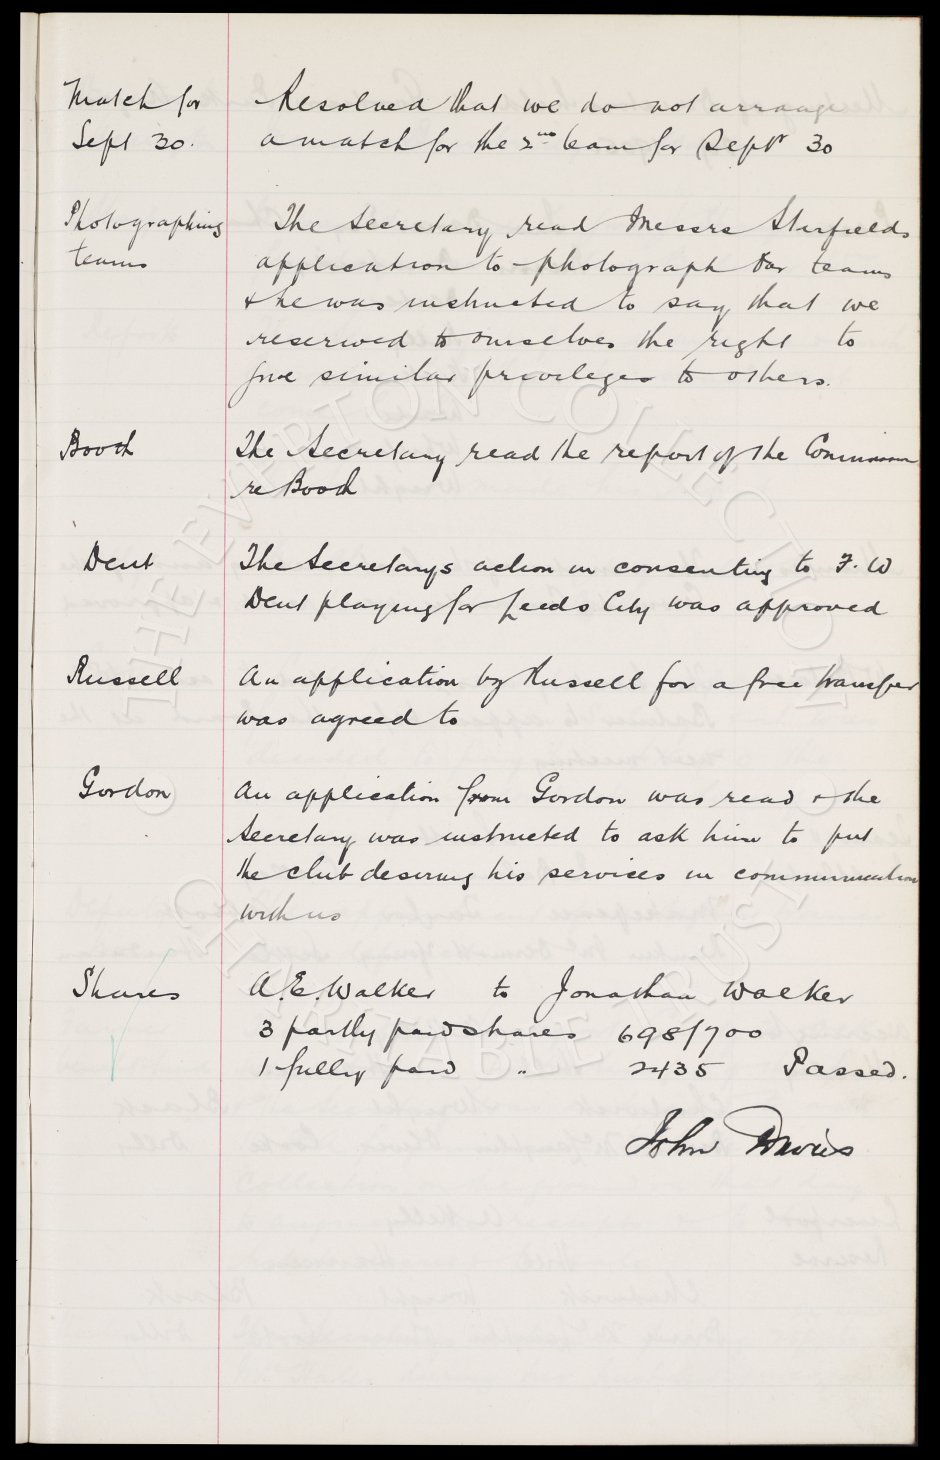 Match for Resolved that we do not arrange
Sept 30. a match for the 2nd team for Sept 30
Photographing The Secretary read Messrs
teams application to photograph our teams
& he was instructed to say that we
reserved to ourselves the right to
give similar privileges to others.
Booth The Secretary read the report of the
re Booth
Dent The Secretarys action in consenting to F. W
Dent playing for Leeds City was approved
Russell An application by Russell for a free transfer
was agreed to
Gordon An application from Gordon was read & the
Secretary was instructed to ask him to put
the club desiring his services in communication
with us
Shares A. E. Walker to Jonathan Walker
3 partly paid shares 698/700
1 fully paid " 2435 Passed.
John Davies
THE EVERTON COLLECTION
CHARITABLE TRUST